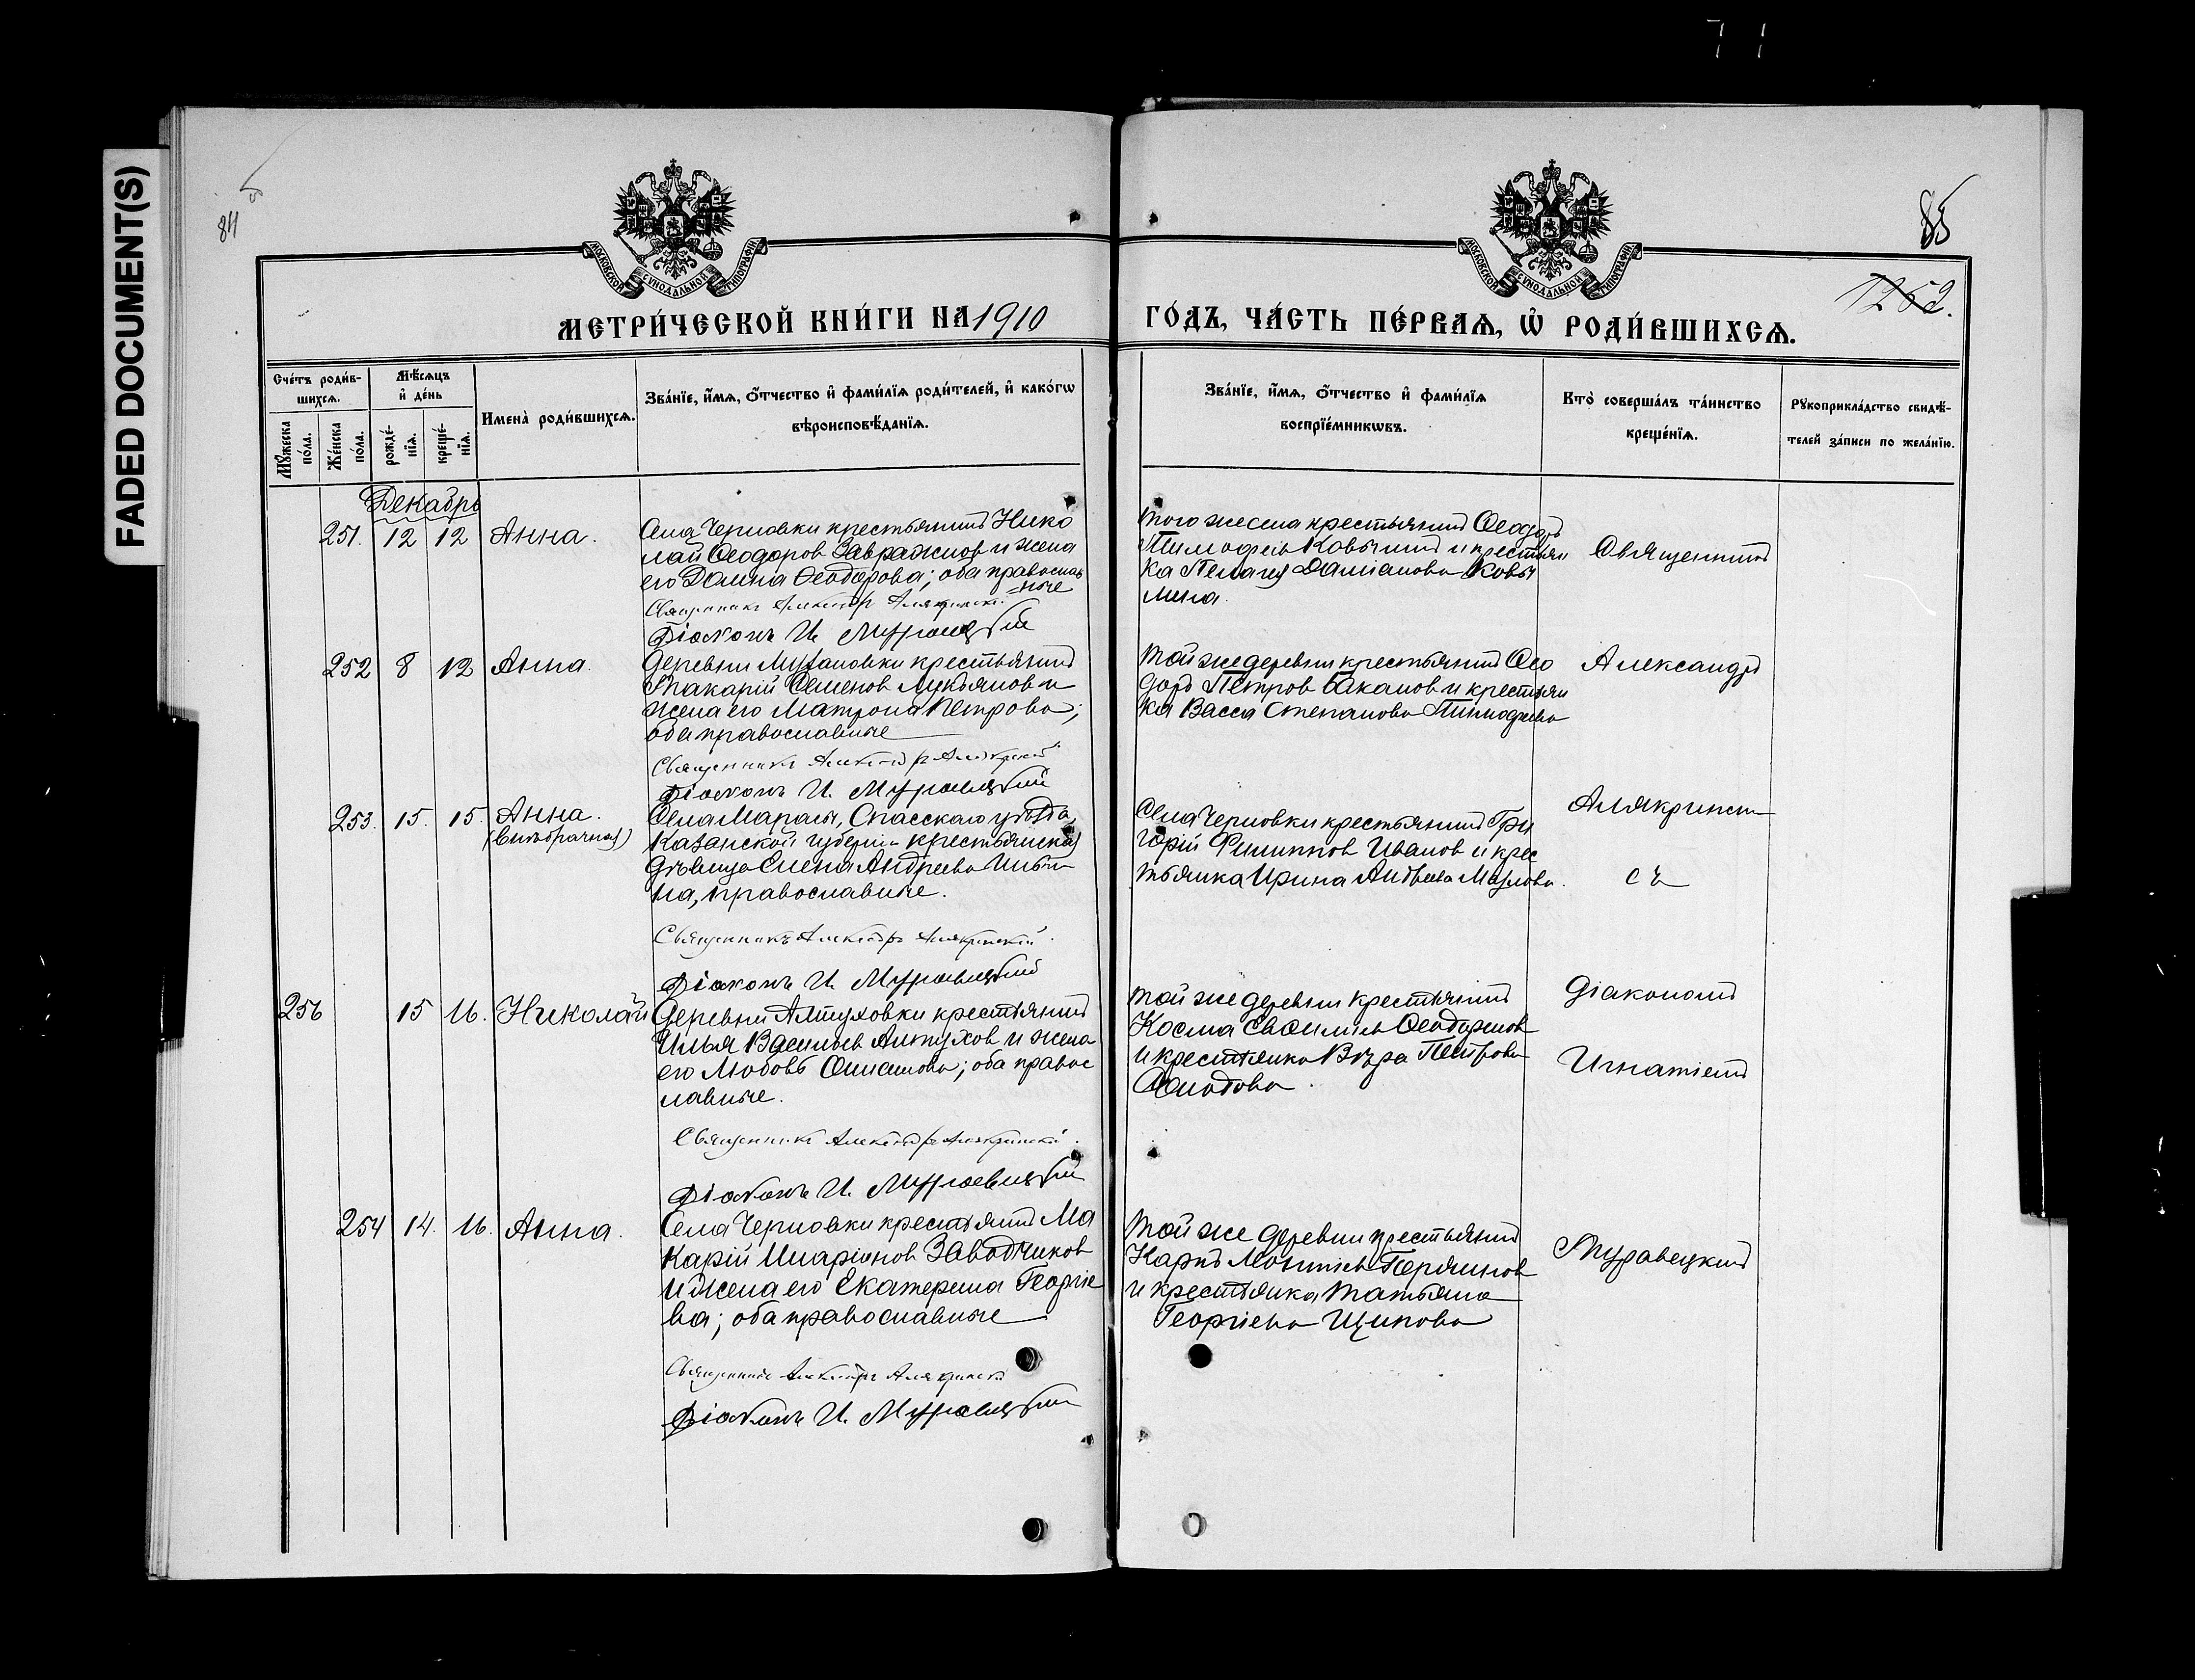 FADED DOCUMENT(S)
71
84
85
1252.
МОСКОВСКОЙ СѴНОДАЛЬНОЙ ТИПОГРАФІИ
МОСКОВСКОЙ СѴНОДАЛЬНОЙ ТИПОГРАФІИ
МЕТРИ́ЧЕСКОЙ КНИ́ГИ НА 1910
ГО́ДЪ, ЧА́СТЬ ПЕ́РВАѦ, Ѿ РОДИ́ВШИХСѦ.
Сче́тъ роди́в-
шихсѧ.
Мѣ́сѧцъ
и҆ де́нь
Му́жеска
по́ла.
Же́нска
по́ла.
рожде́-
нїѧ.
креще́-
нїѧ.
Имена̀ роди́вшихсѧ.
Зва́нїе, и҆́мѧ, ѻ҆́тчество и҆ фами́лїѧ роди́телей, и҆ како́гѡ
вѣроисповѣ́данїѧ.
Зва́нїе, и҆́мѧ, ѻ҆́тчество и҆ фами́лїѧ
воспрїе́мникѡвъ.
Кто̀ соверша́лъ та́инство
креще́нїѧ.
Рꙋкоприкла́дство свидѣ́-
телей за́писи по жела́нїю.
Декабрь
251. 12 12 Анна.
Села Черновки крестьянинъ Нико
лай Ѳеодоров Завражнов и жена
его Домна Ѳеодорова; оба православ
ные
Священникъ Александръ Алякринскій
Діаконъ И. Муравецкій
того же села крестьянинъ Ѳеодоръ
Тимоѳеев и крестьян
ка Пелагея Даміанова
Священникъ
252 8 12 Анна.
Деревни крестьянинъ
Макарій Семенов Лукьянов и
жена его Матрона Петрова;
оба православные
Священникъ Александръ Алякринскій
Діаконъ И. Муравецкій
той же деревни крестьянинъ Ѳео
доръ Петров Баканов и крестьян
ка Васса Степанова Тимофеева
Александръ
253. 15. 15. Анна.
(внѣбрачная)
Села Марасы, Спасскаго уѣзда,
Казанской губерніи крестьянская
дѣвица Елена Андреева Ильи
на, православные.
Священникъ Александръ Алякринскій
Діаконъ И. Муравецкій
Села Черновки крестьянинъ Гри
горій Филиппов Иванов и крес
тьянка Ирина
Алякринскій
съ
256 15 16. Николай
Деревни Алтуховки крестьянинъ
Илья Алтухов и жена
его Любовь; оба правос
лавные.
Священникъ Александръ Алякринскій
Діаконъ И. Муравецкій
той же деревни крестьянинъ
Косма
и крестьянка Вѣра Петрова
діакономъ
Игнатіемъ
254 14. 16. Анна.
Села Черновки крестьянинъ Ма
карій Иларіонов Заводчиков
и жена его Екатерина Георгіе
ва; оба православные
Священникъ Александръ Алякринскій
Діаконъ И. Муравецкій
той же деревни крестьянинъ
Карпъ
и крестьянка Татьяна
Георгіева Щипова
Муравецкимъ